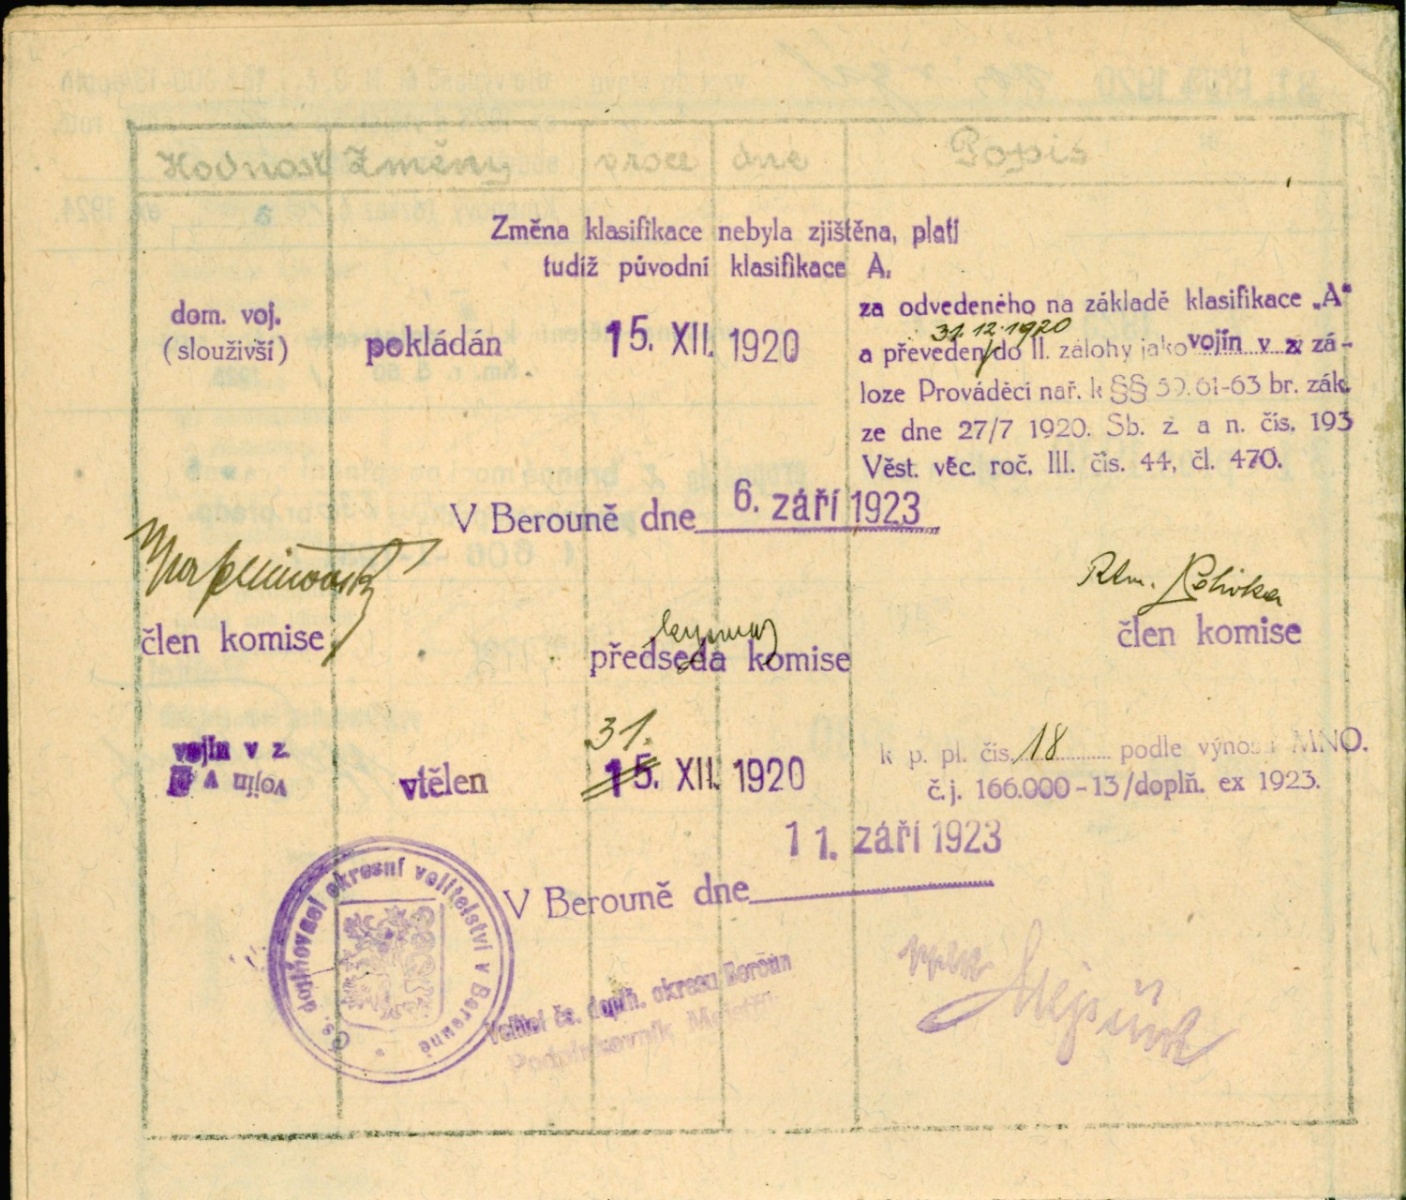 Hodnost Změny vroce dne Popis
Změna klasifikace nebyla zjištěna, platí
tudíž původní klasifikace A.
dom. voj.
(slouživší)
pokládán
15. XII. 1920
za odvedeného na základě klasifikace „A"
31.12.1920
a převeden do II. zálohy jako vojín v z zá-
loze Prováděcí nař. k §§ 59. 61-63 br. zák.
ze dne 27/7 1920. Sb. z. a n. čís. 193
Věst. věc. roč. III. čís. 44, čl. 470.
V Berouně dne 6. září 1923
člen komise
předseda komise
člen komise
vojín v z.
vojín v
vtělen
31.
15. XII. 1920
k p. pl. čís. 18 podle výnosu MNO.
č. j. 166.000-13/doplň. ex 1923.
11. září 1923
V Berouně dne
Čs. doplňovací okresní velitelství v Berouně
Velitel čs. doplň. okresu Beroun
Podplukovník